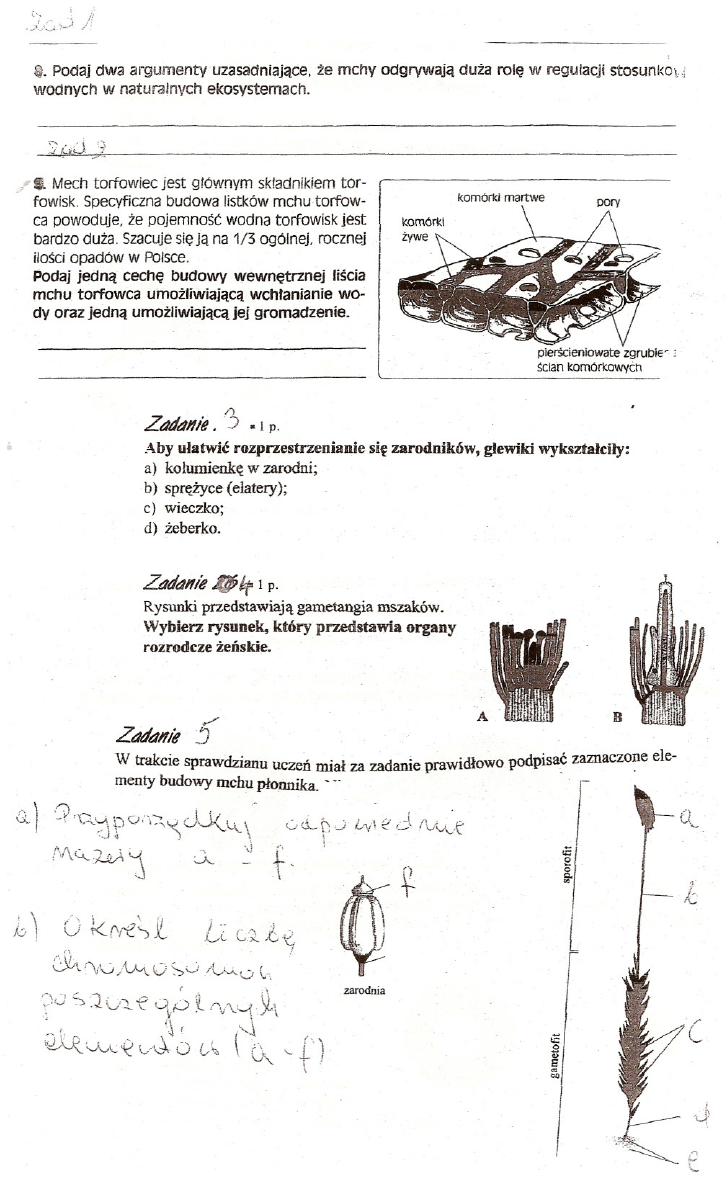 Zad 1
8. Podaj dwa argumenty uzasadniające, że mchy odgrywają duża rolę w regulacji stosunków
wodnych w naturalnych ekosystemach.
Zad 2
9. Mech torfowiec jest głównym składnikiem tor-
fowisk. Specyficzna budowa listków mchu torfow-
ca powoduje, że pojemność wodna torfowisk jest
bardzo duża. Szacuje się ją na 1/3 ogólnej, rocznej
ilości opadów w Polsce.
Podaj jedną cechę budowy wewnętrznej liścia
mchu torfowca umożliwiającą wchłanianie wo-
dy oraz jedną umożliwiającą jej gromadzenie.
komórki martwe
pory
komórki
żywe
pierścieniowate zgrubie
ścian komórkowych
Zadanie . 3 - 1 p.
Aby ułatwić rozprzestrzenianie się zarodników, glewiki wykształciły:
a) kolumienkę w zarodni;
b) sprężyce (elatery);
c) wieczko;
d) żeberko.
Zadanie 4 1 p.
Rysunki przedstawiają gametangia mszaków.
Wybierz rysunek, który przedstawia organy
rozrodcze żeńskie.
A
B
Zadanie 5
W trakcie sprawdzianu uczeń miał za zadanie prawidłowo podpisać zaznaczone ele-
menty budowy mchu płonnika.
a) Przyporządkuj odpowiednie
nazwy a - f.
b) Określ liczbę
chromosomów
poszczególnych
elementów (a - f)
f
zarodnia
sporofit
gametofit
a
b
c
d
e